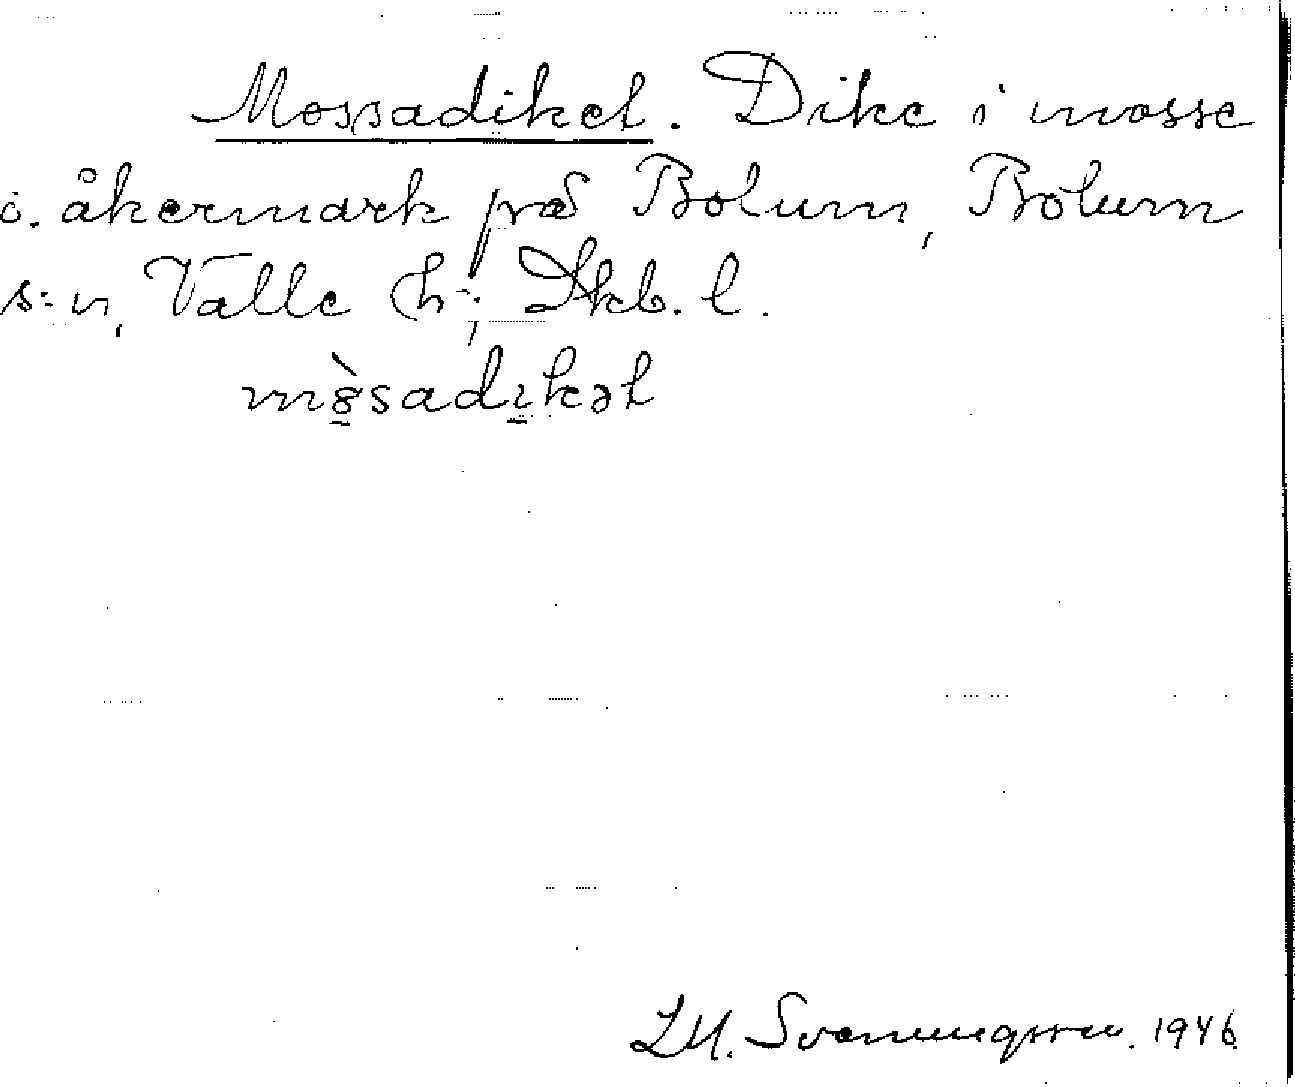 Mossadiket. Dike i mosse
o. åkermark på Bolum, Bolum
s:n, Valle h:d, Skb. l.
Svenungsson. 1946